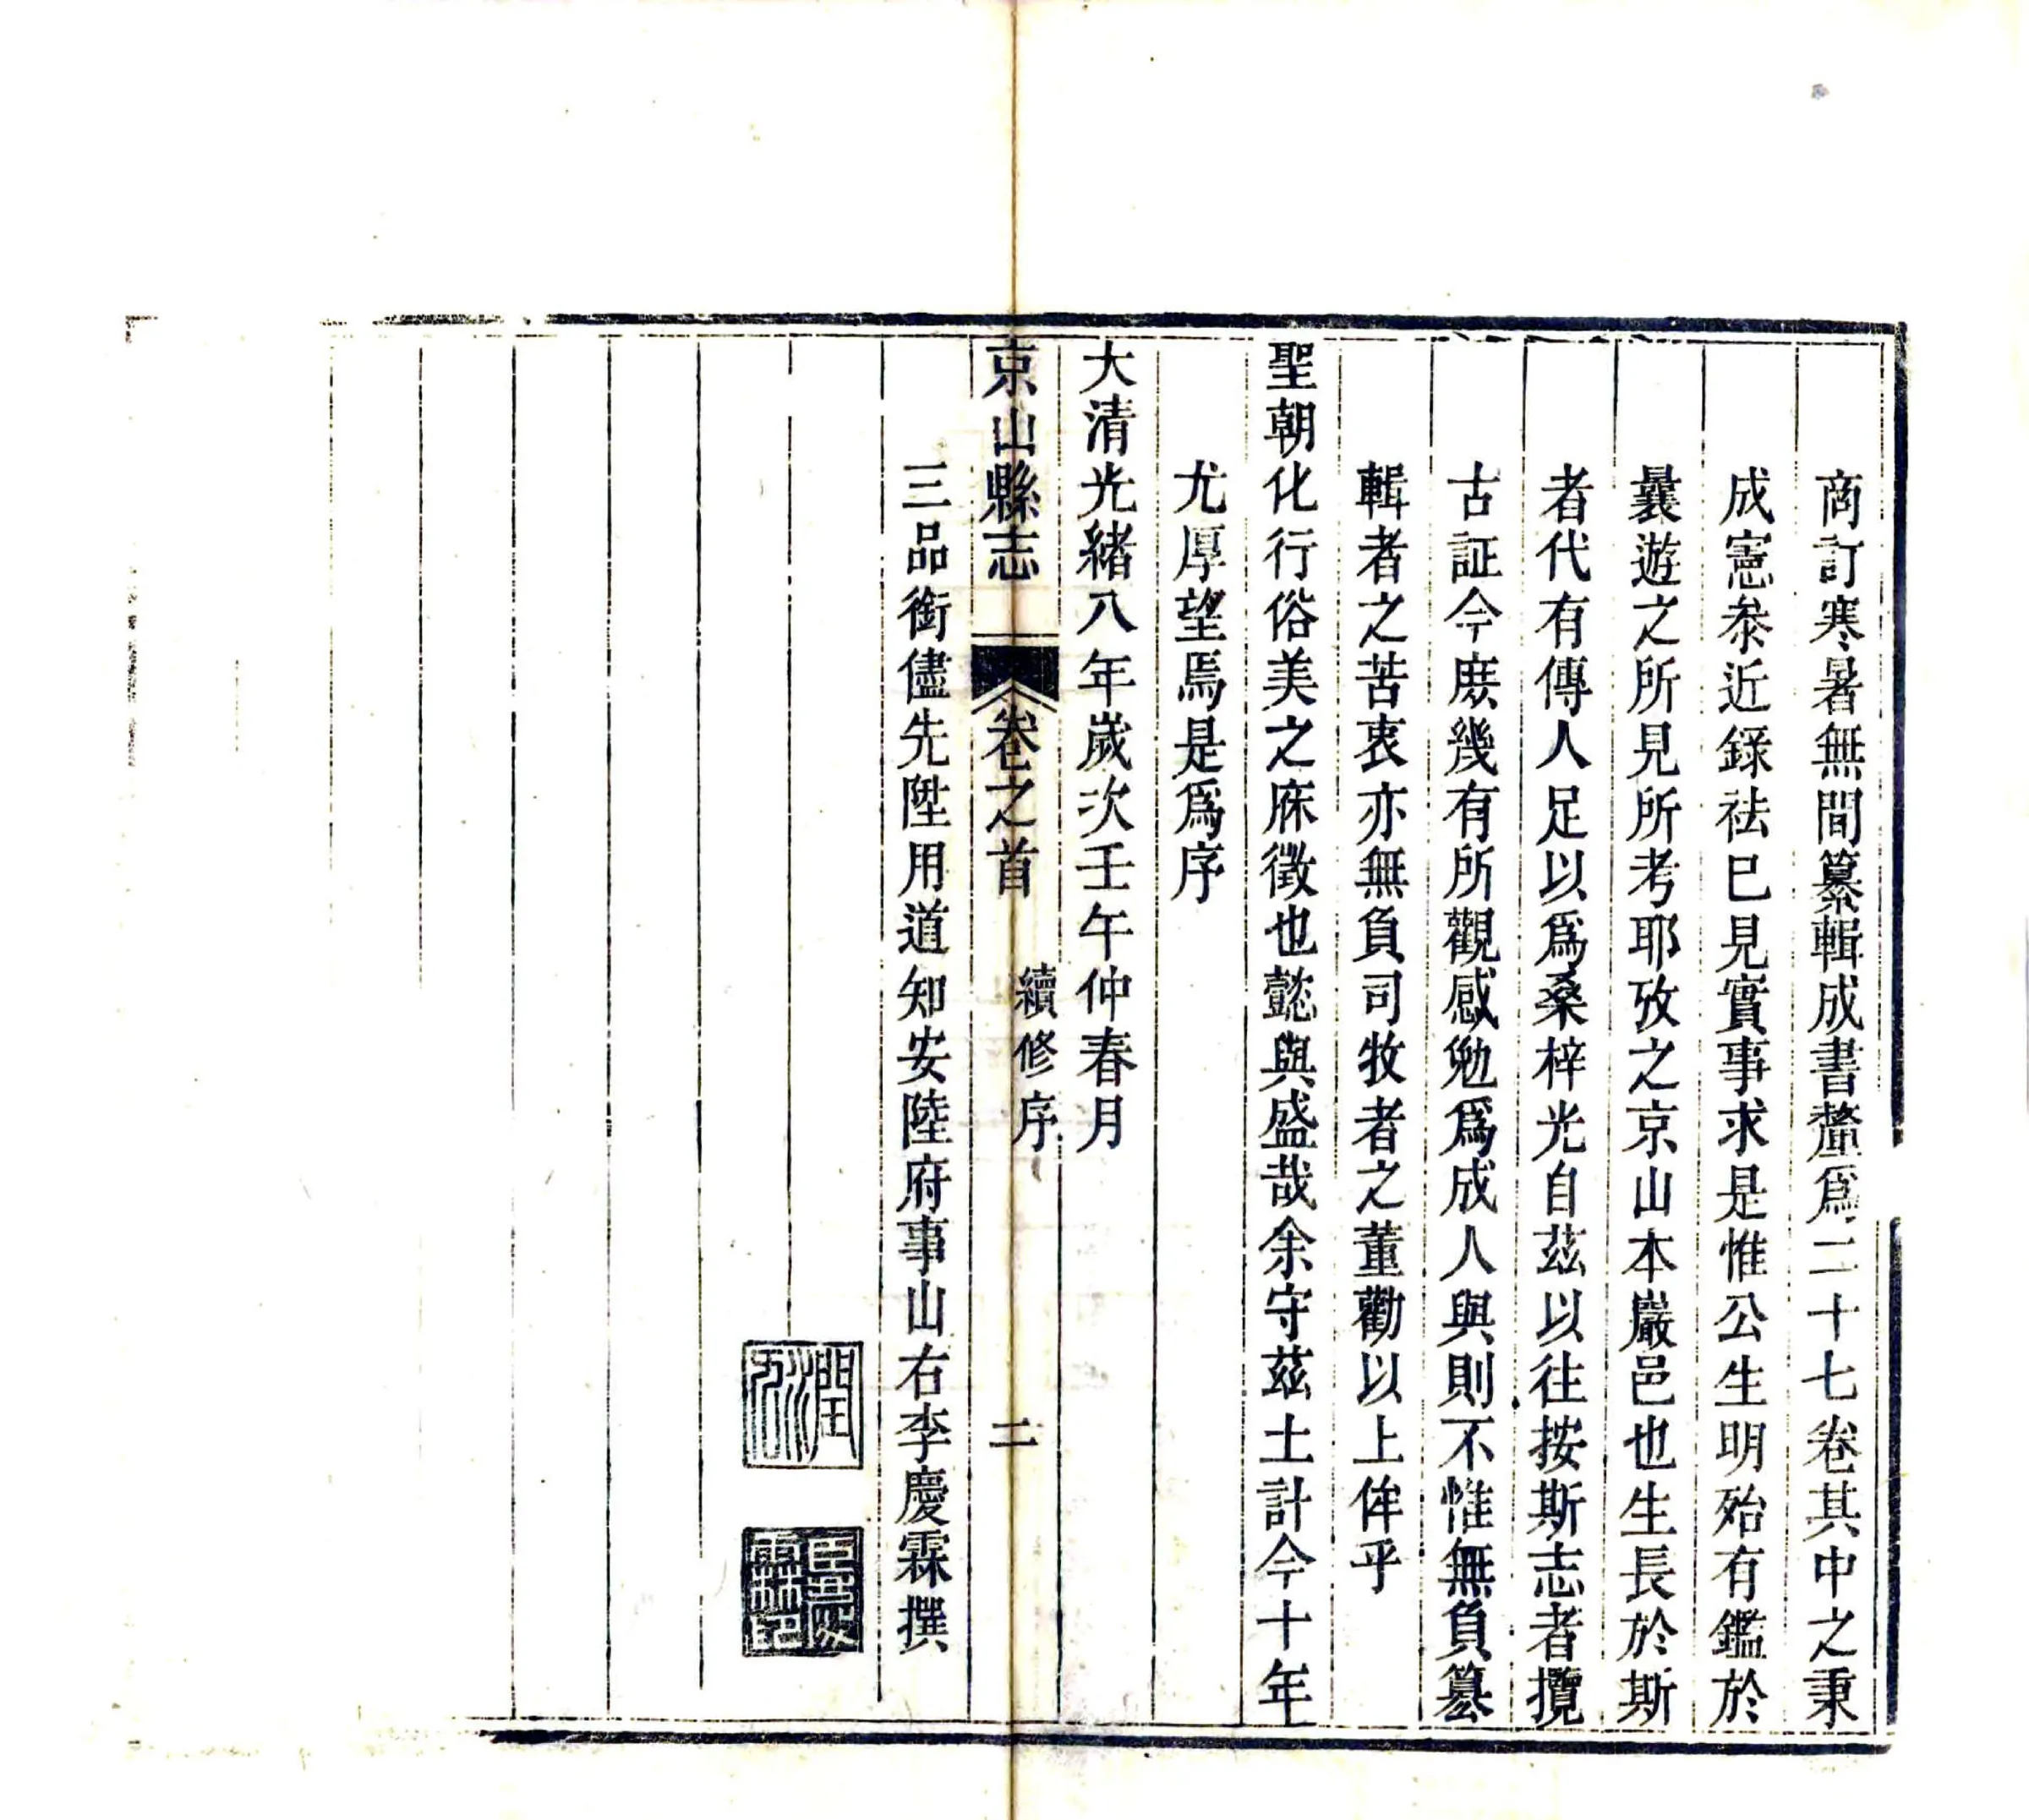 商訂寒暑無間纂輯成書釐爲二十七卷其中之秉
成憲叅近録祛已見實事求是惟公生明殆有鑑於
曩遊之所見所考耶攷之京山本巖邑也生長於斯
者代有傳人足以爲桑梓光自茲以往按斯志者攬
古証今庶幾有所觀感勉爲成人與則不惟無負纂
輯者之苦衷亦無負司牧者之董勸以上侔乎
聖朝化行俗美之庥徵也懿與盛哉余守茲土計今十年
尤厚望焉是爲序
大清光緒八年歲次壬午仲春月
京山縣志 卷之首 續修序 二
三品銜儘先陞用道知安陸府事山右李慶霖撰
臣慶霖印